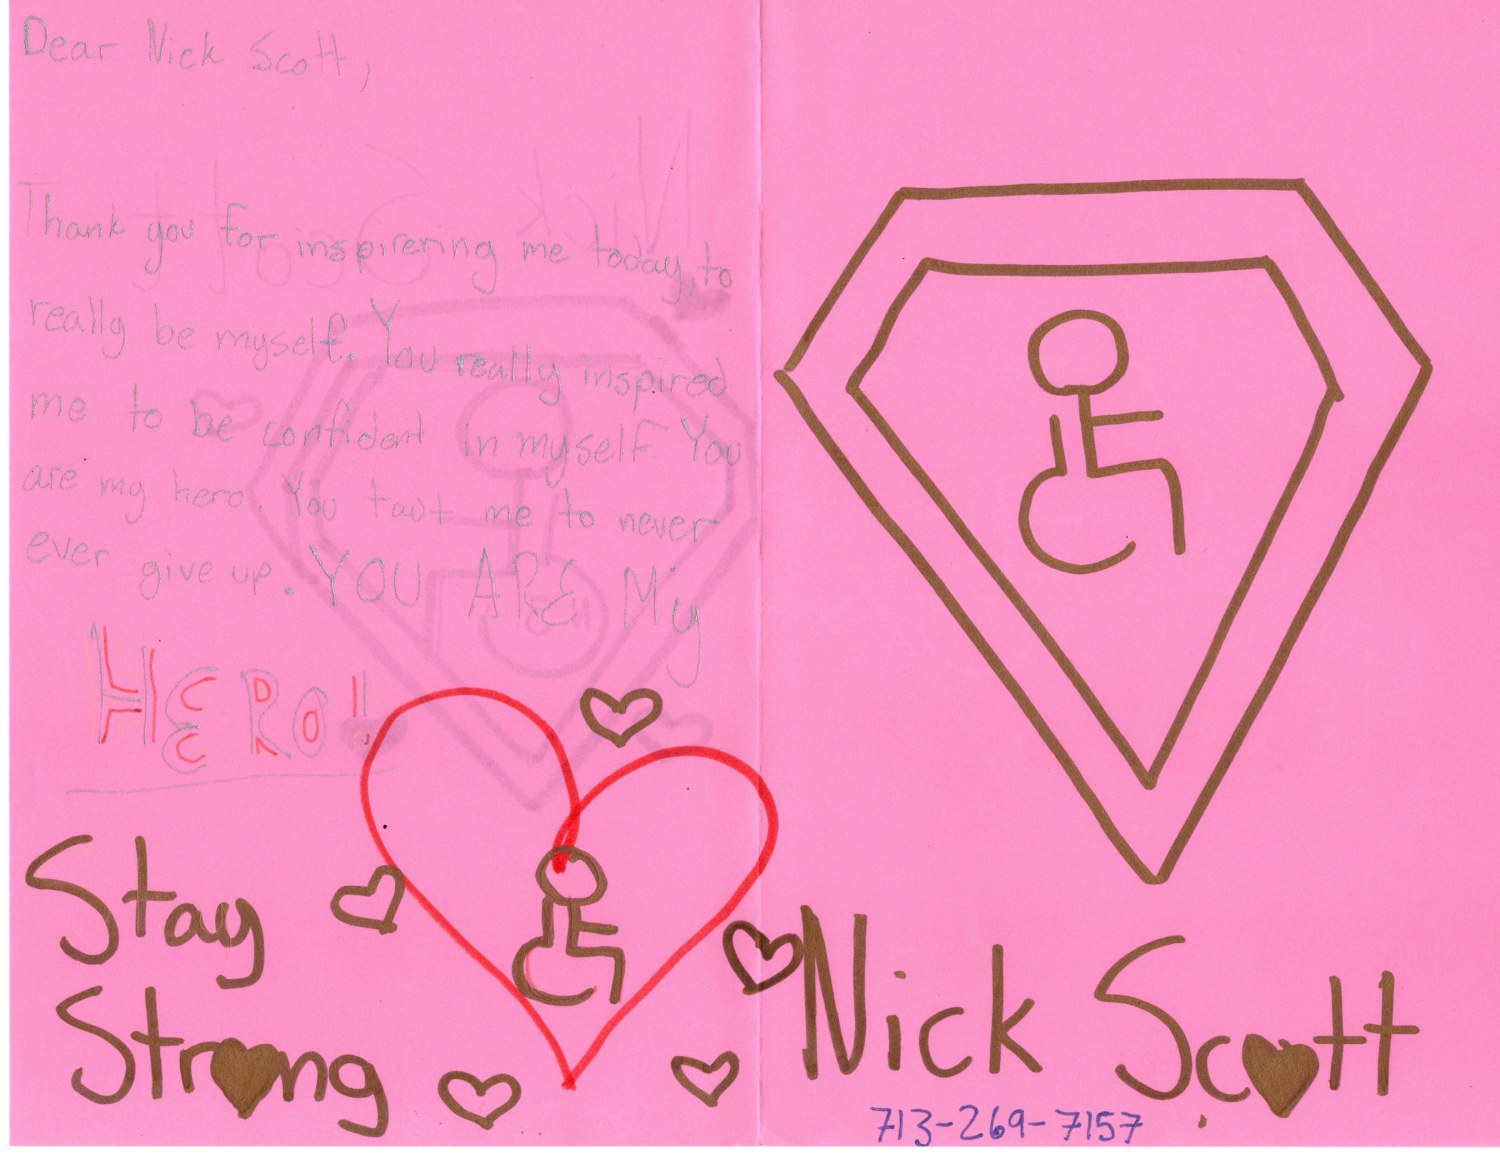 Dear Nick Scott,
Thank you for inspirering me today, to
really be myself. You really inspired
me to be confident in myself. You
are my hero. You taut me to never
ever give up. YOU ARE My
HERO!!
Stay
Strong
Nick Scott
713-269-7157